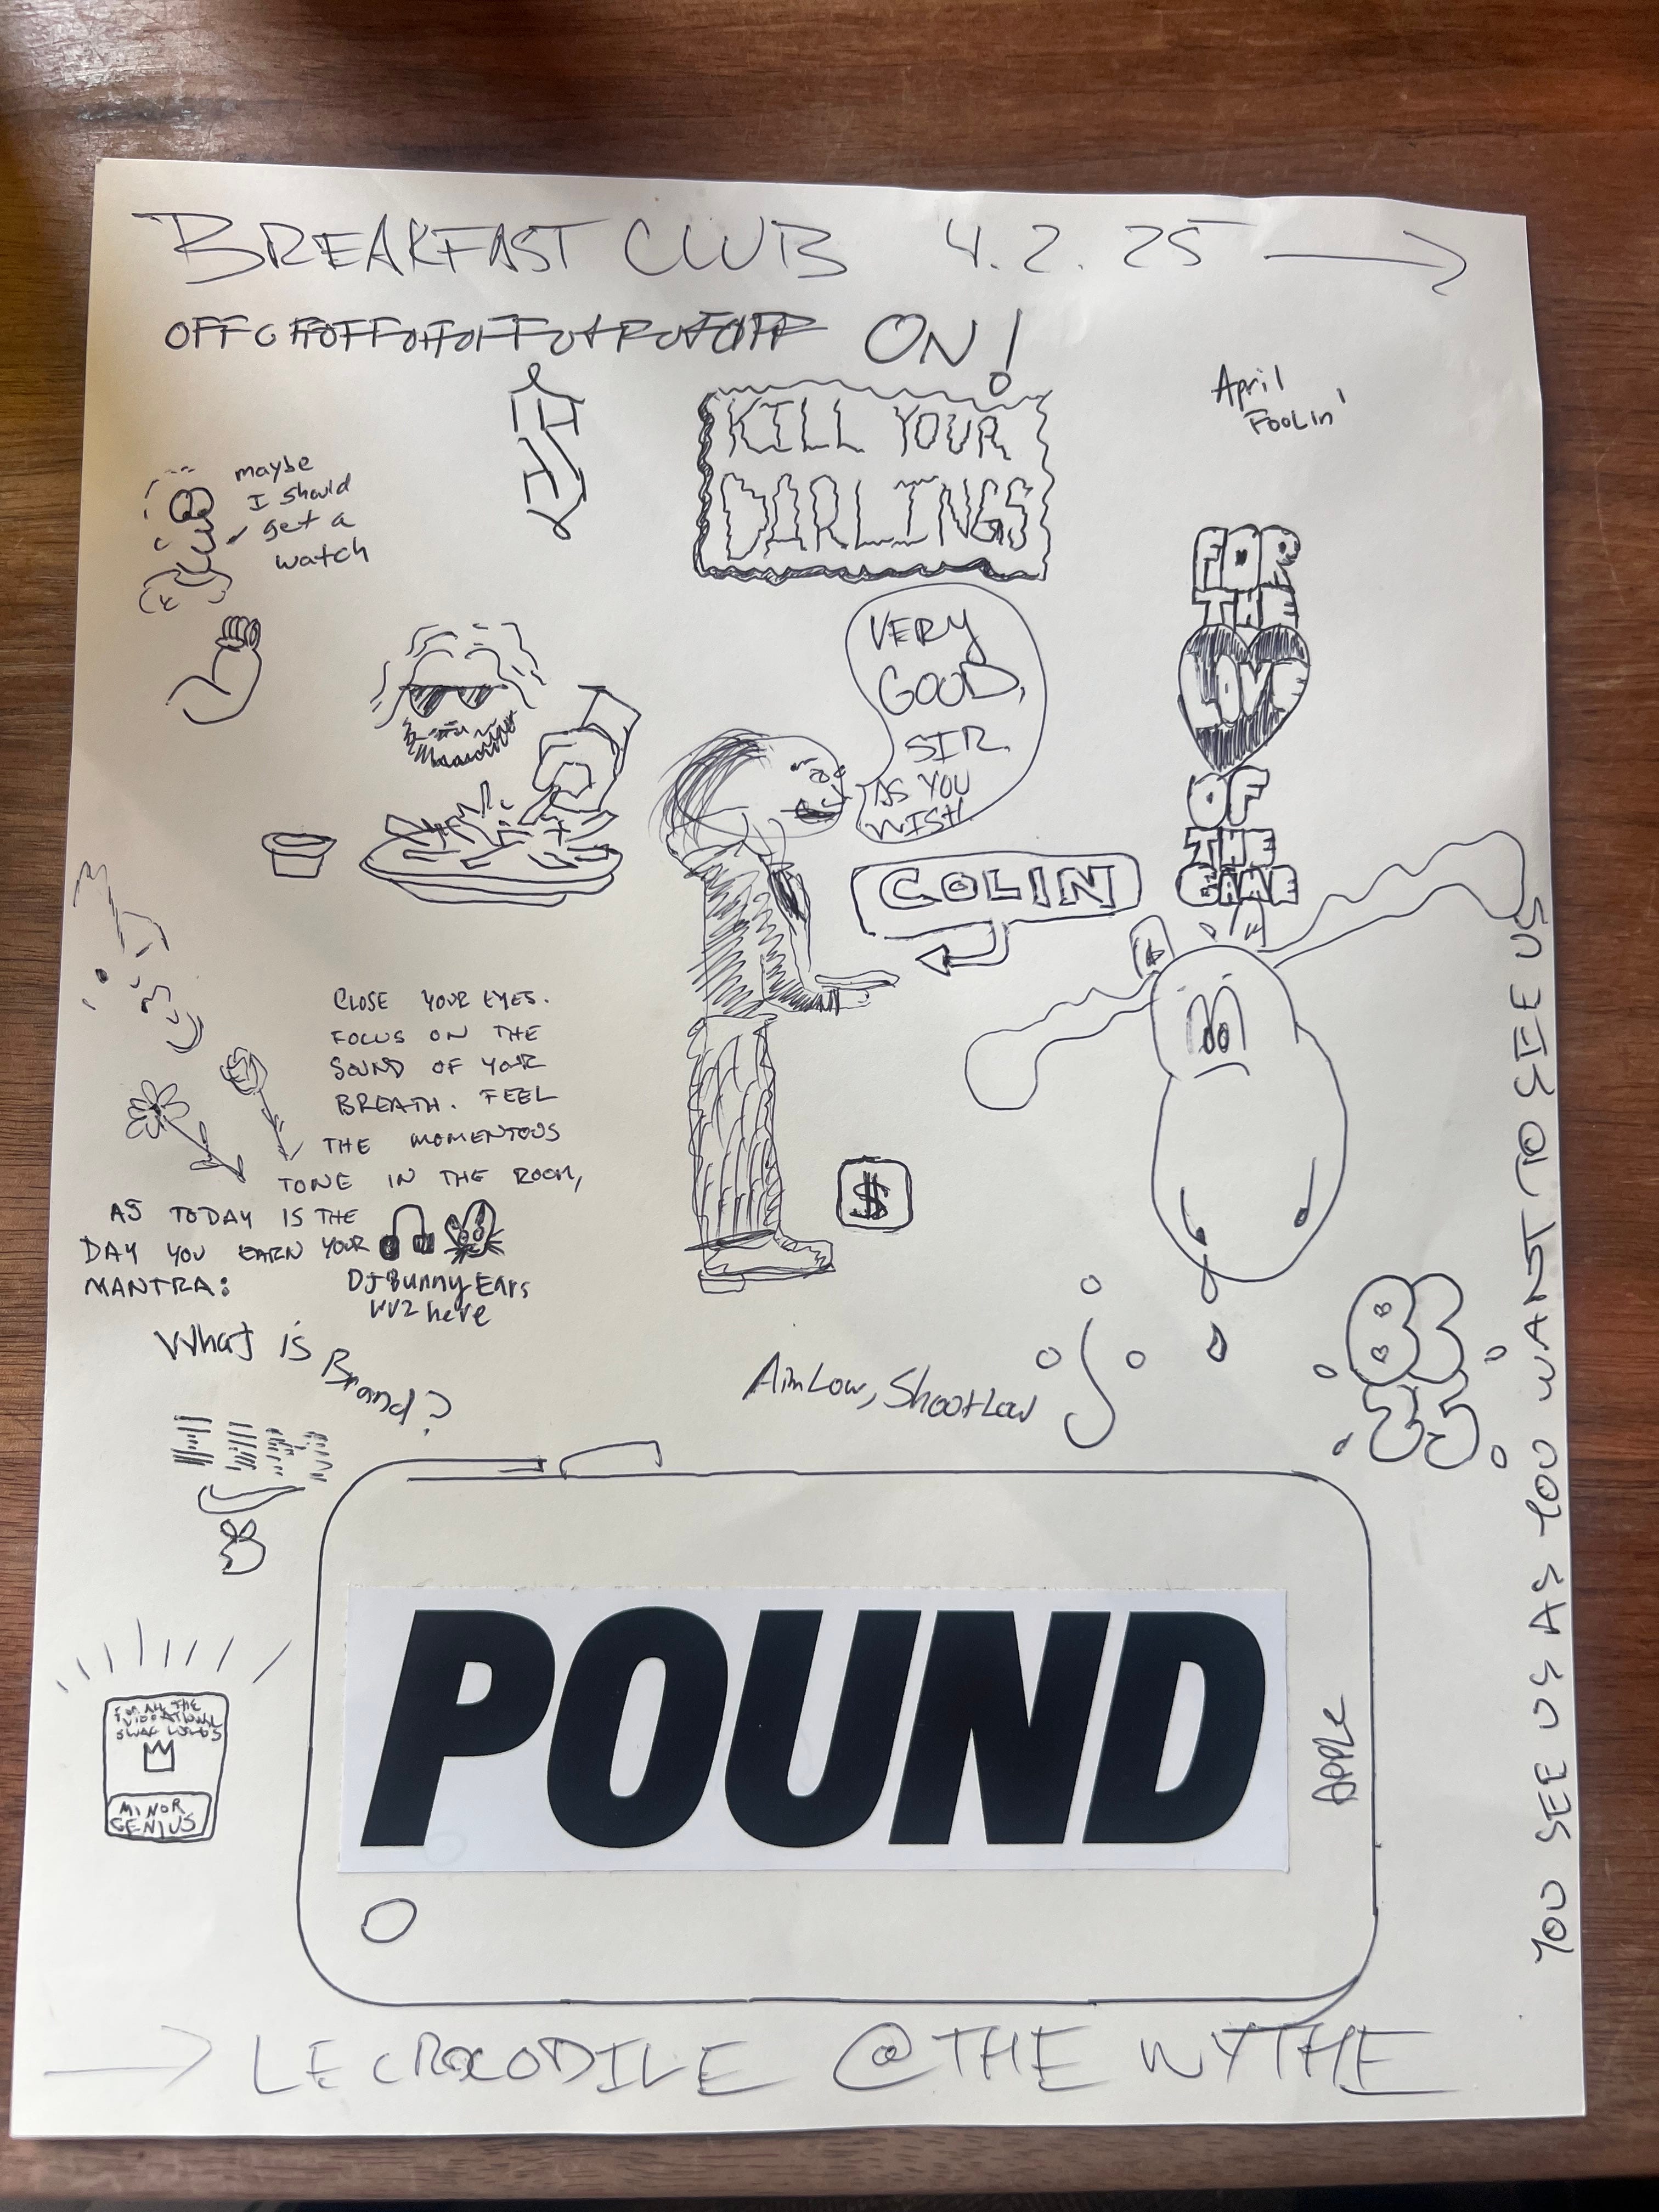 BREAKFAST CLUB 4.2.25
ON!
KILL YOUR
DARLINGS
April
FOOLin'
maybe
I should
get a
watch
FOR
THE
LOVE
OF
THE
GAME
VERY
GOOD,
SIR.
AS YOU
WISH.
COLIN
CLOSE YOUR EYES.
FOCUS ON THE
SOUND OF YOUR
BREATH. FEEL
THE MOMENTOUS
TONE IN THE ROOM,
AS TODAY IS THE
DAY YOU EARN YOUR
MANTRA:
DJ Bunny Ears
wuz here
$
What is
Brand?
Aim Low, Shoot Low
BC
25
YOU SEE US AS YOU WANT TO SEE US
POUND
APPLE
FOR ALL THE
SWAG
MINOR
GENIUS
LE CROCODILE @ THE WYTHE